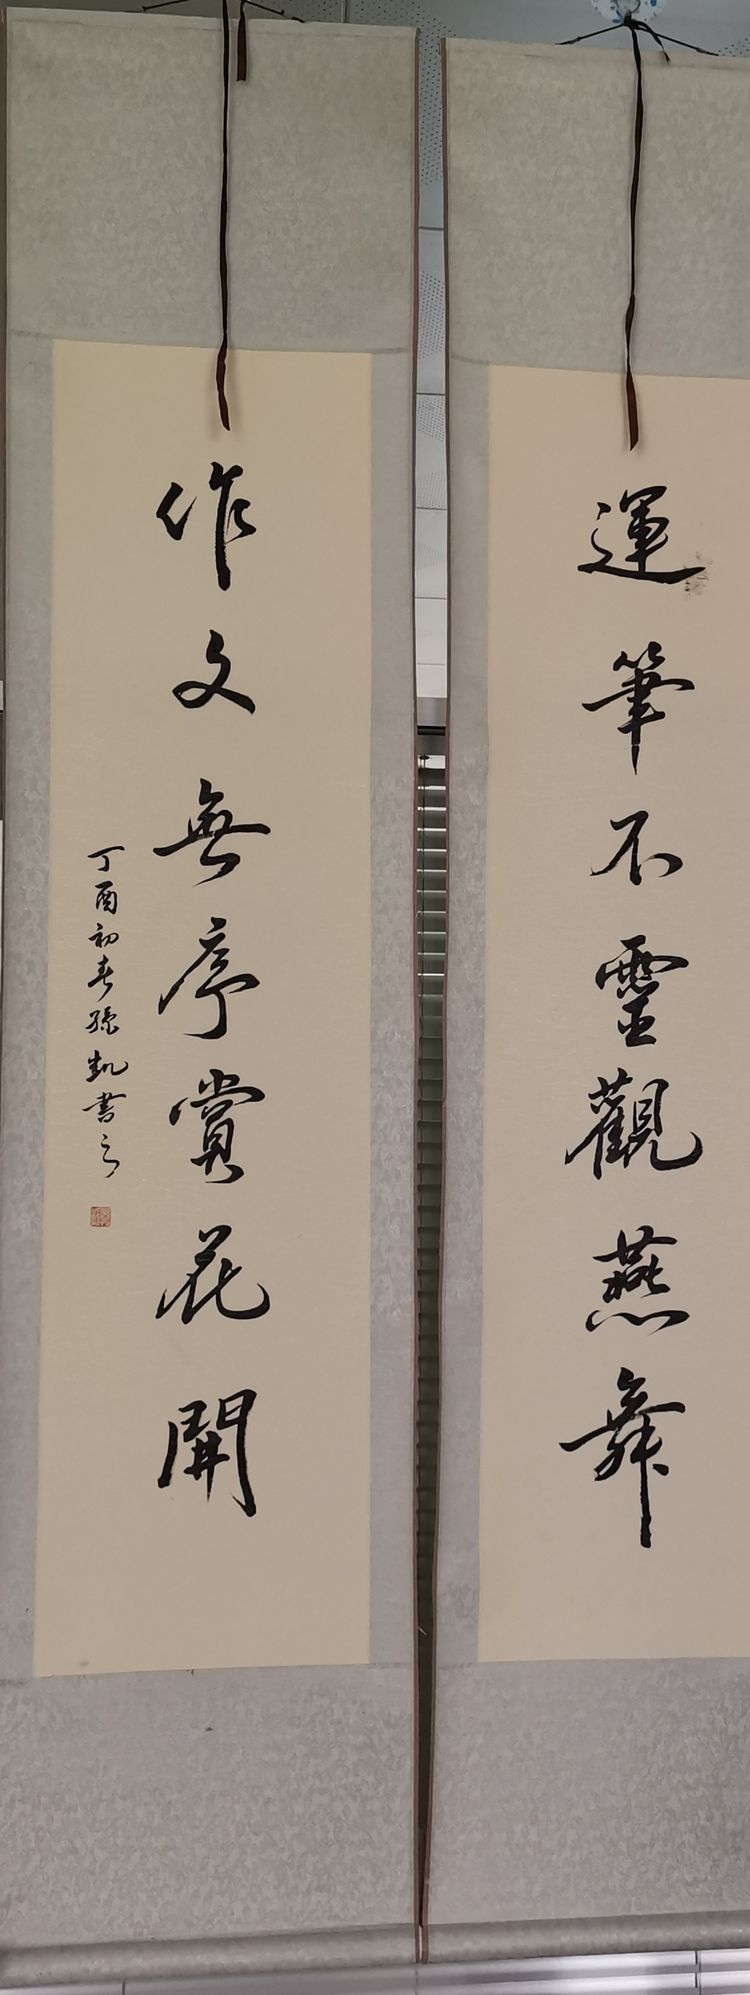 運筆不靈觀燕舞
作文無序賞花開
丁酉初春孫凱書之